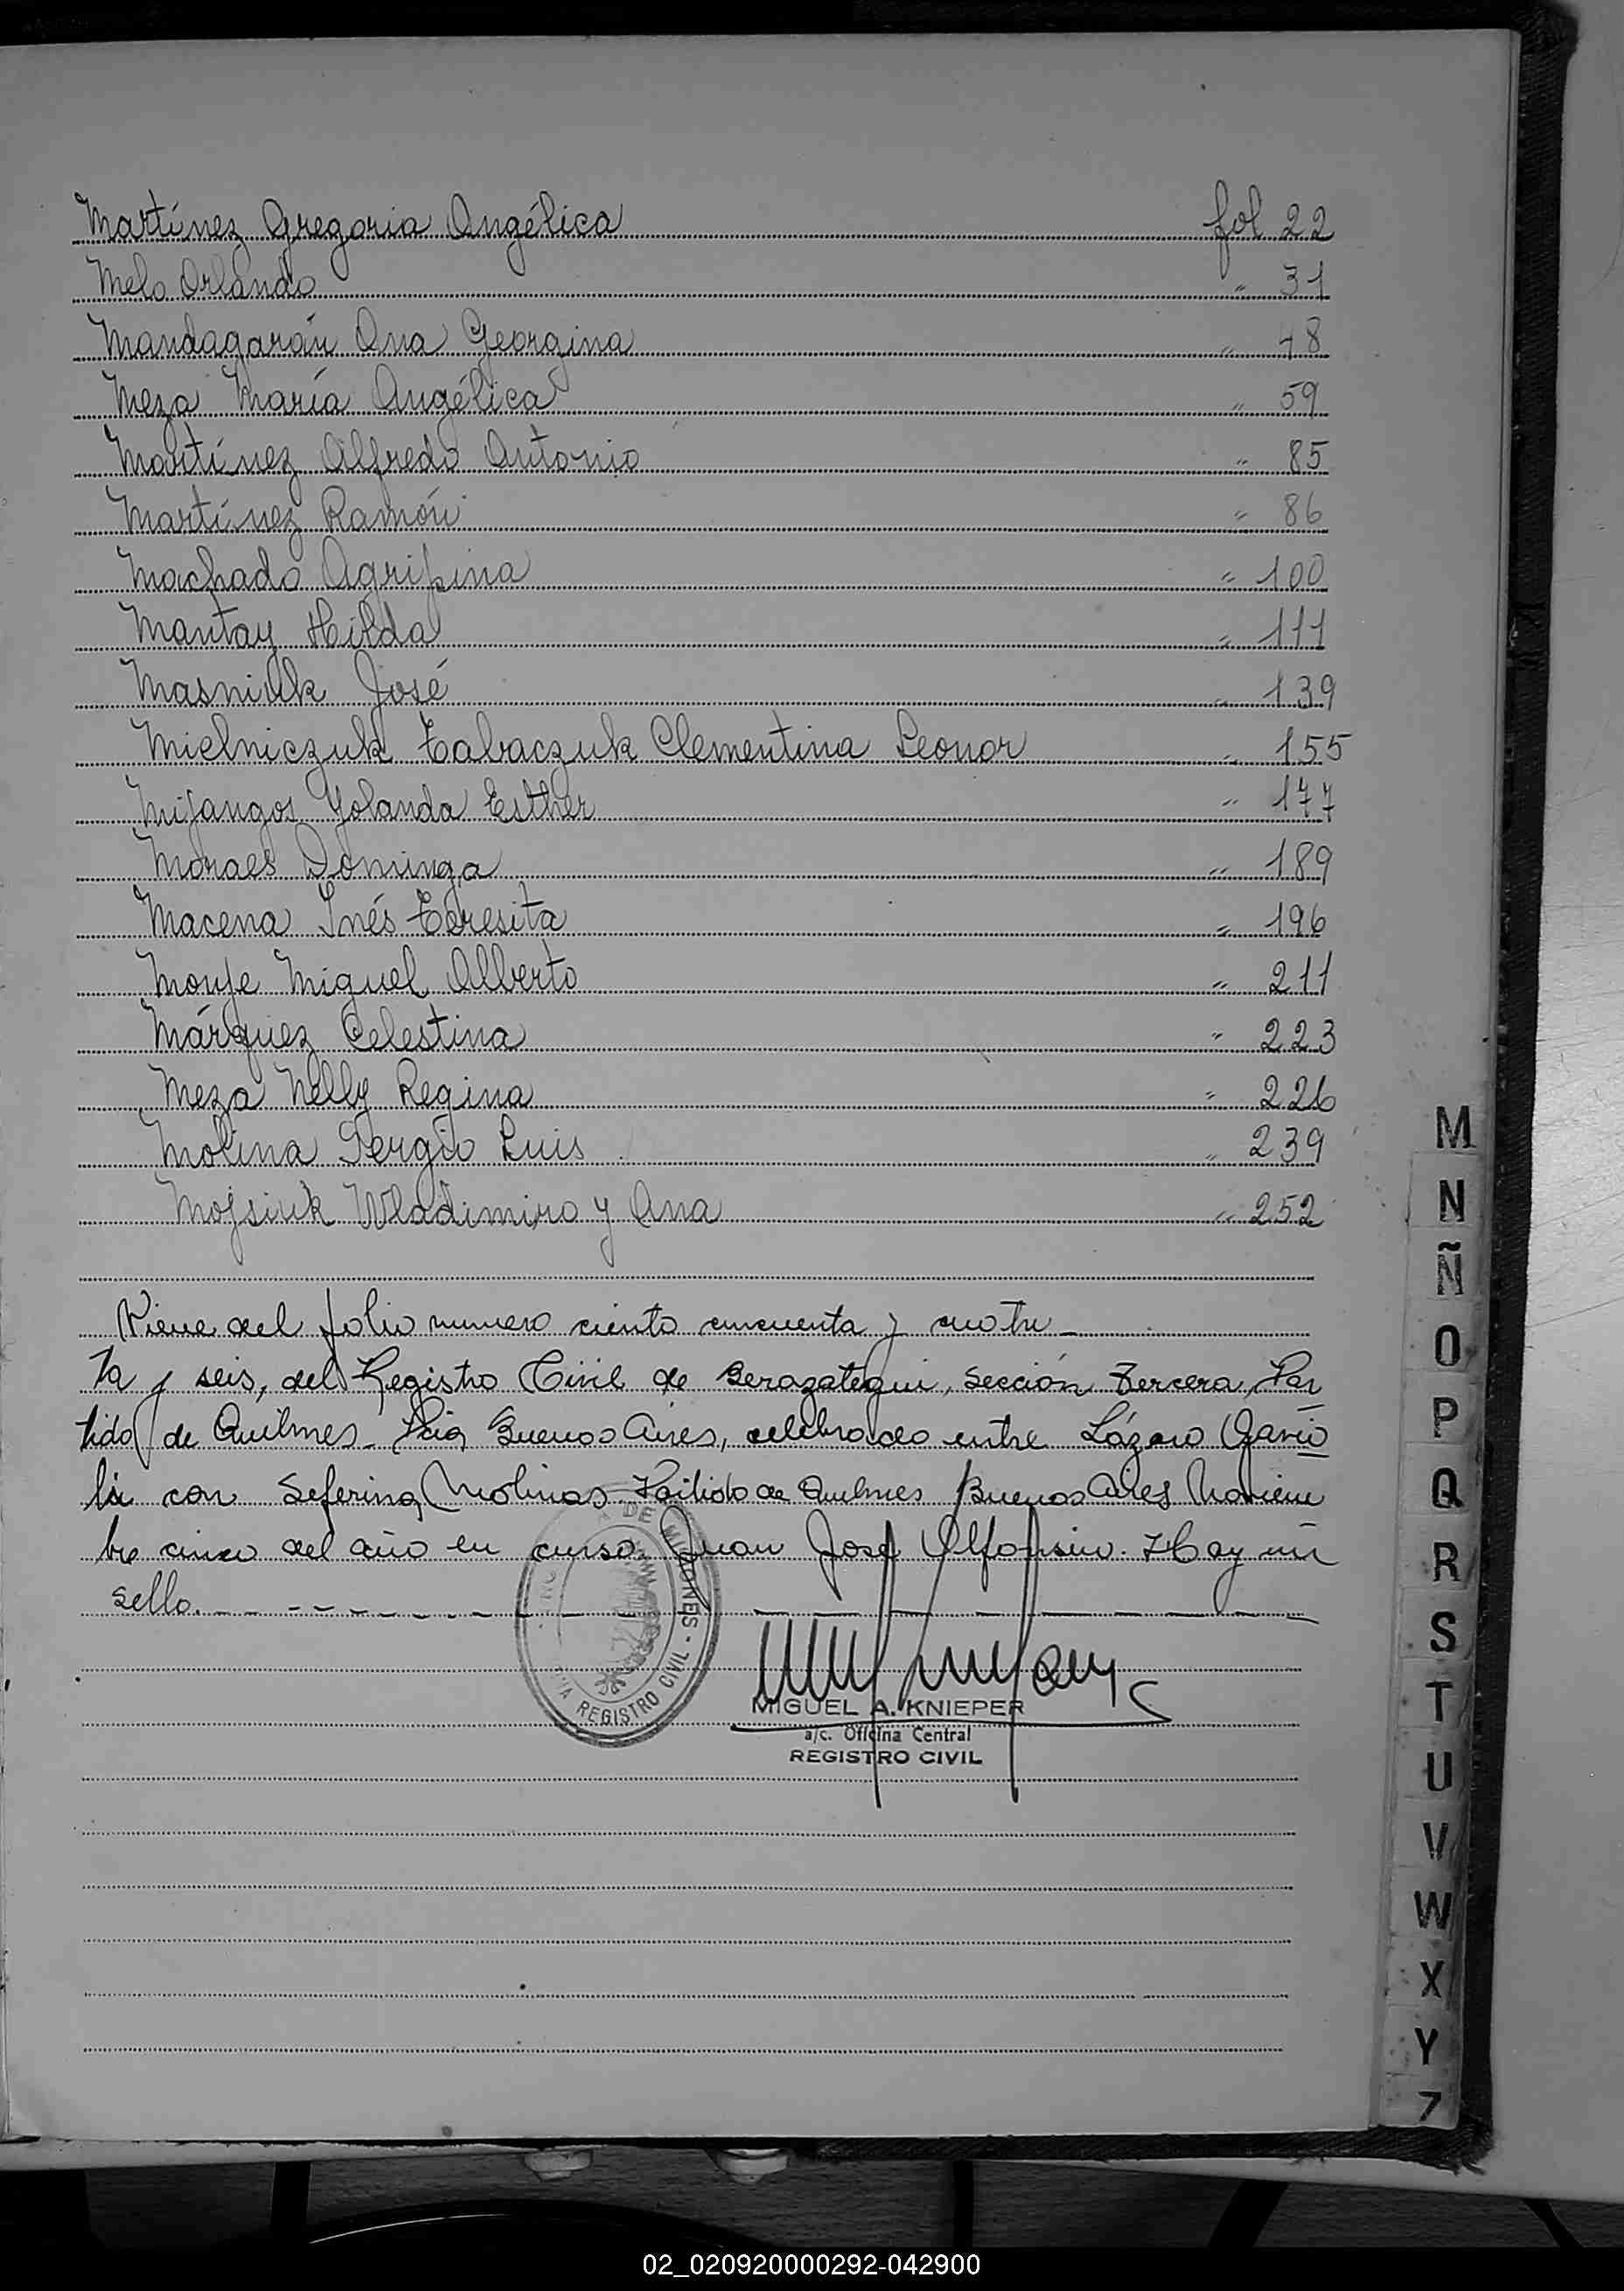 Martínez Gregoria Angélica fol 22
Melo Orlando " 31
Mandagarán Ana Georgina " 48
Meza María Angélica " 59
Martínez Alfredo Antonio " 85
Martínez Ramón " 86
Machado Agripina " 100
Mantay Hilda " 111
Masniuk José " 139
Mielniczuk Tabaczuk Clementina Leonor " 155
Mijangos Yolanda Esther " 177
Moraes Dominga " 189
Macena Inés Teresita " 196
Monje Miguel Alberto " 211
Márquez Celestina " 223
Meza Nelly Regina " 226
Molina Sergio Luis " 239
Mojsiuk Wladimiro y Ana " 252
Viene del folio numero ciento cincuenta y cuatro
ta y seis, del Registro Civil de Berazategui, Sección Tercera, Par
tido de Quilmes. Pcia Buenos Aires, celebrado entre Lázaro
con Seferina Molinas. Partido de Quilmes Buenos Aires Noviem
bre cinco del año en curso. Juan José Alfonsín. Hay un
sello.
DE MISIONES - REGISTRO CIVIL
MIGUEL A. KNIEPER
a/c. Oficina Central
REGISTRO CIVIL
M
N
Ñ
O
P
Q
R
S
T
U
V
W
X
Y
Z
02_020920000292-042900